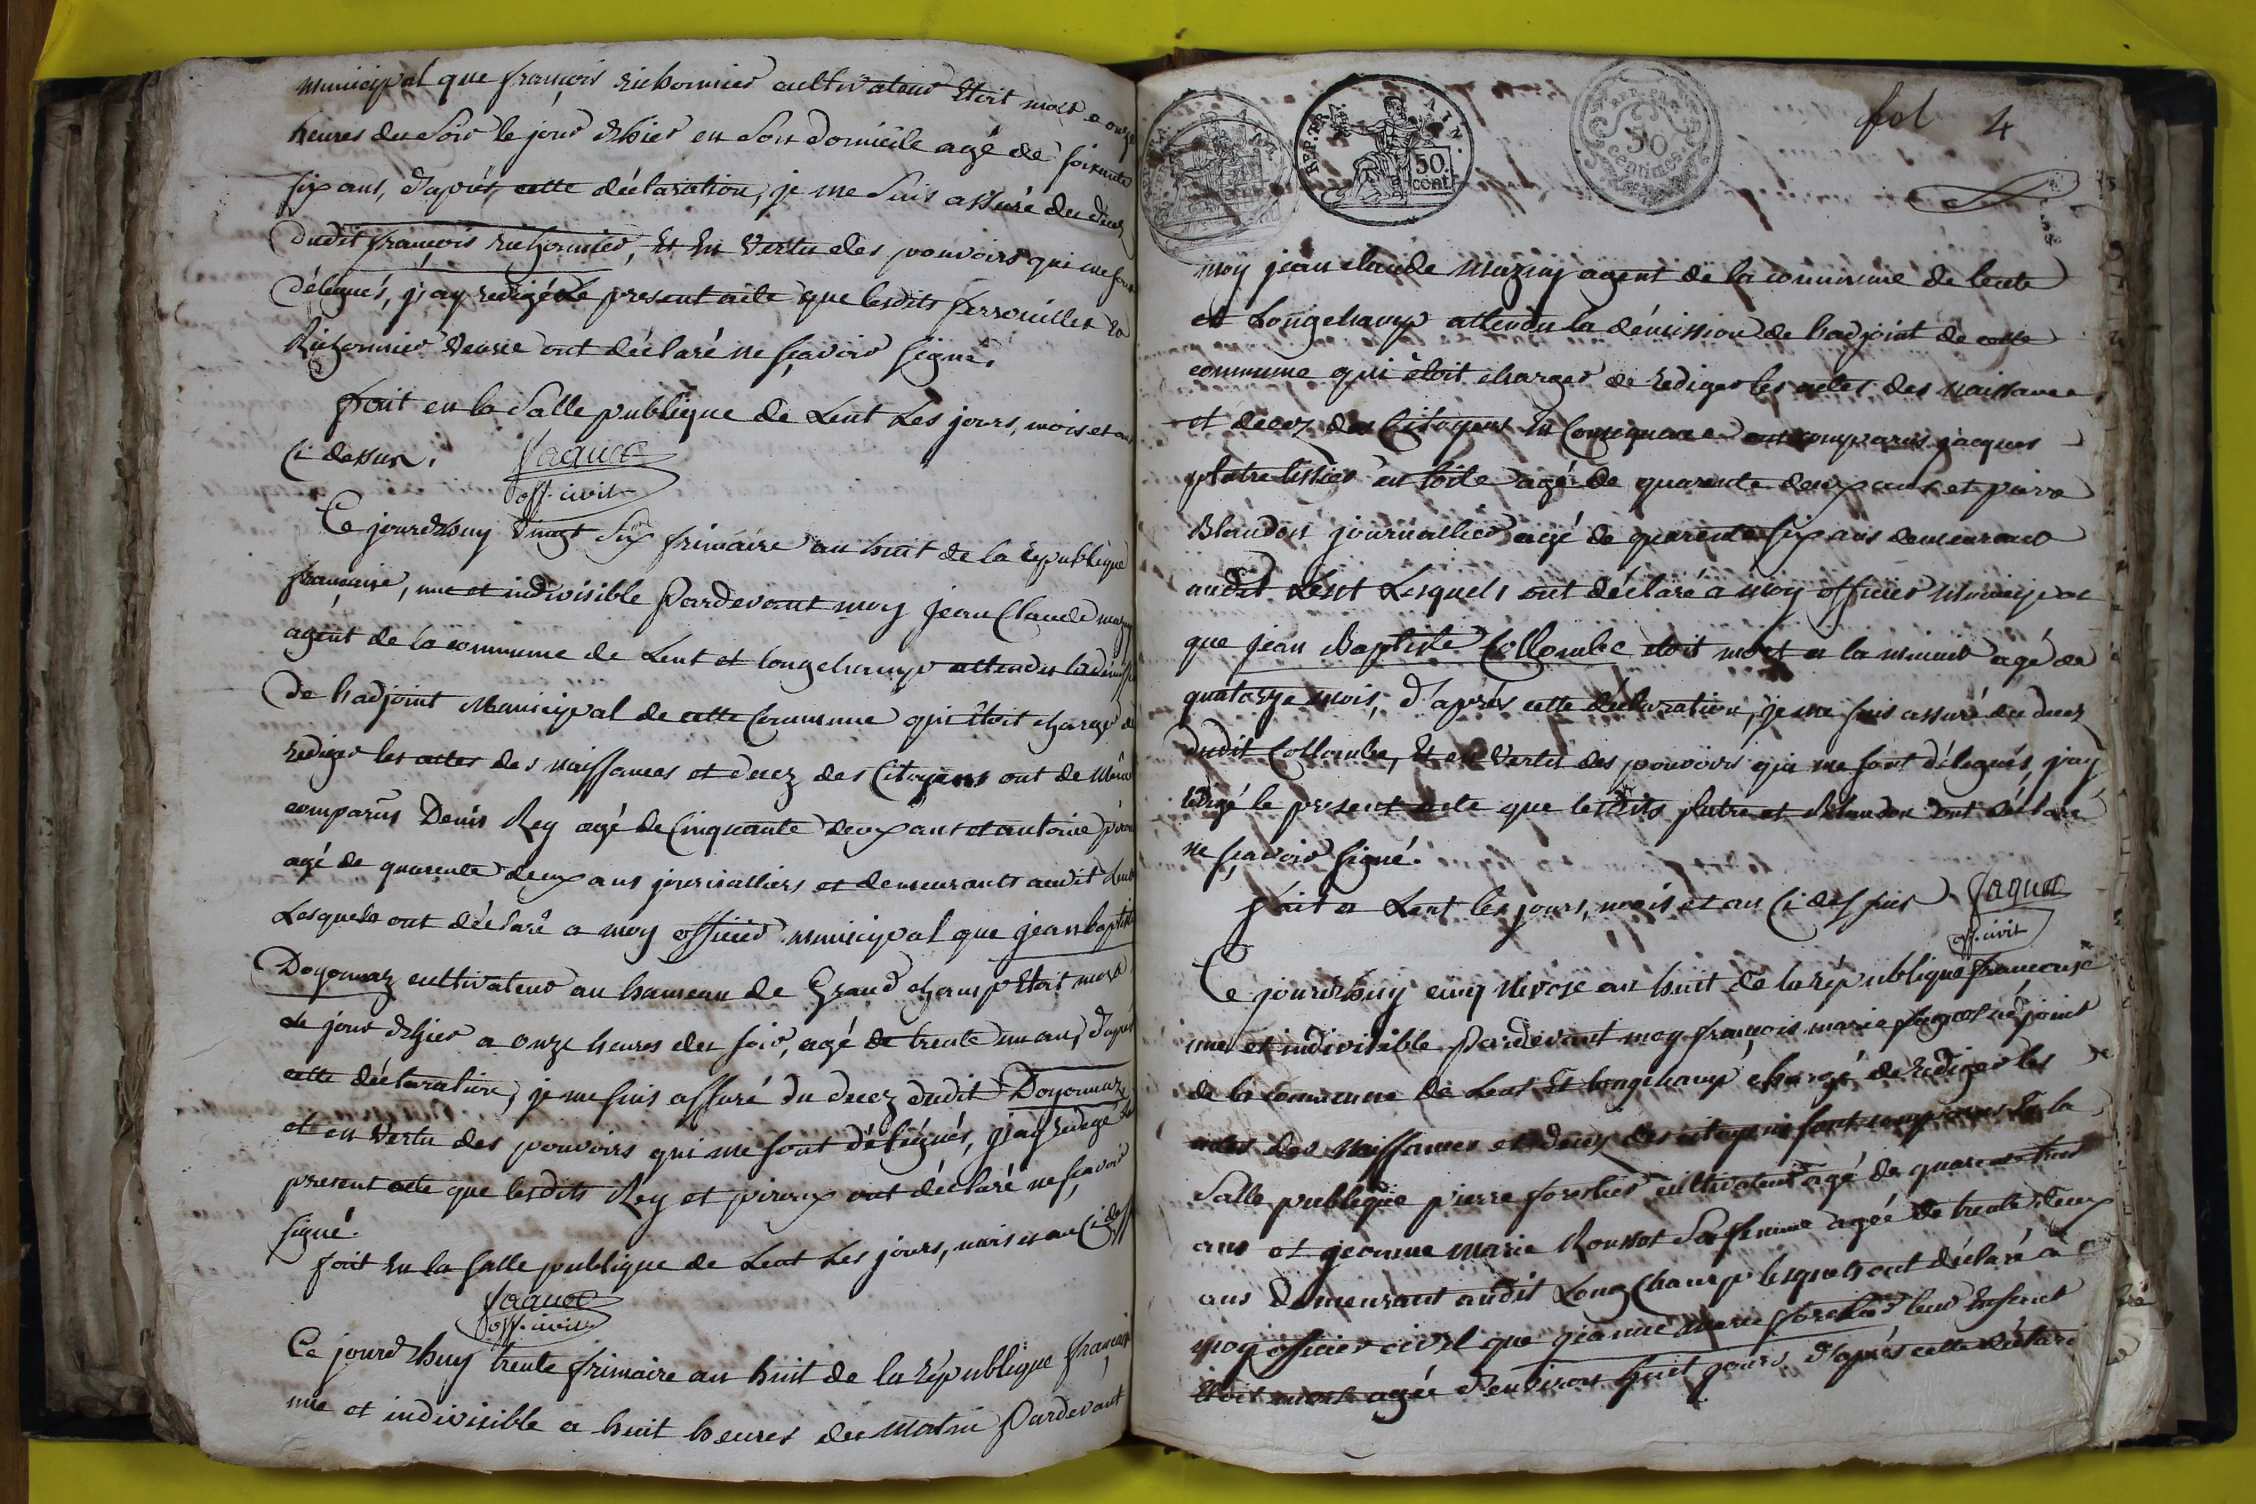 municipal que françois Richonnier cultivateur Etoit mort a onze
heures du Soir le jour d'hier en Son Domicile agé de soixante
six ans, d'aprés cette déclaration, je me Suis assuré du decez
dudit françois Richonnier, Et En Vertu des pouvoirs qui me sont
délegués, j'ay redigé Le present acte que lesdits ferrouillet Et
Richonnier Veuve ont déclaré ne sçavoir signé.
fait en la Salle publique de Lent Les jours, mois et an
Ci dessus. Jaquet
off. civil
Ce jourdhuy Vingt Six frimaire an huit de la Republique
française, une et indivisible Pardevant moy Jean Claude mazuy
agent de la commune de Lent et longchamp attendu la démission
De l'adjoint Municipal de cette Commune qui étoit chargé de
rediger les actes des naissances et decez des Citoyens ont de même
comparus Denis Rey agé de Cinquante deux ans et antoine piroux
agé de quarente deux ans journalliers et demeurants audit Lent
Lesquels ont déclaré a moy officier municipal que jean baptiste
Doyonnaz cultivateur au hameau de Grand champ Etoit mort
Le jour d'hier a onze heures du soir, agé de trente un an, d'aprés
cette déclaration, je me suis assuré du decez dudit Doyonnaz
et en Vertu des pouvoirs qui me sont délégués, j'ay redigé Le
present acte que lesdits Rey et piroux ont déclaré ne sçavoir
signé.
fait En la salle publique de Lent Les jours, mois et an Ci dessus
Jaquet
off. civil
Ce jourd'huy trente frimaire an huit de la république française
une et indivisible a huit heures du Matin Pardevant
REP. FRA. AIN.
50 cent
REP. FRA.
50
centimes
fol 4
moy jean claude Mazuy agent de la commune de lent
et Longchamp attendu la démission de l'adjoint de cette
commune qui étoit charger de rediger les actes des naissance
et decez des Citoyens En Consequence ont comparus jacques
platre tissier en toile agé de quarente deux ans et pierre
Blandon journallier agé de quarente six ans demeurant
audit Lent Lesquels ont déclaré a moy officier Municipal
que jean Baptiste Collombe etoit mort a la minuit agé de
quatorze mois, d'aprés cette déclaration, je me suis assuré du decez
dudit Collombe, Et en Vertu des pouvoirs qui me sont délegués, j'ay
redigé le present acte que lesdits platre et Blandon ont déclaré
ne sçavoir signé.
fait a Lent les jours, mois et an Ci dessus Jaquet
off. civil
Ce jourd'huy cinq Nivose an huit de la république française
une et indivisible Pardevant moy françois marie jaquet adjoint
de la commune de Lent Et longchamp chargé de rediger les
actes des Naissances et decez des citoyens sont comparus En la
Salle publique pierre forestier cultivateur agé de quarente trois
ans et jeanne Marie Rousset Sa femme agée de trente deux
ans Demeurant audit Long Champ lesquels ont déclaré a
moy officier civil que jeanne marie forestier leur Enfant
Etoit morte agée d'environ huit jours d'aprés cette déclara